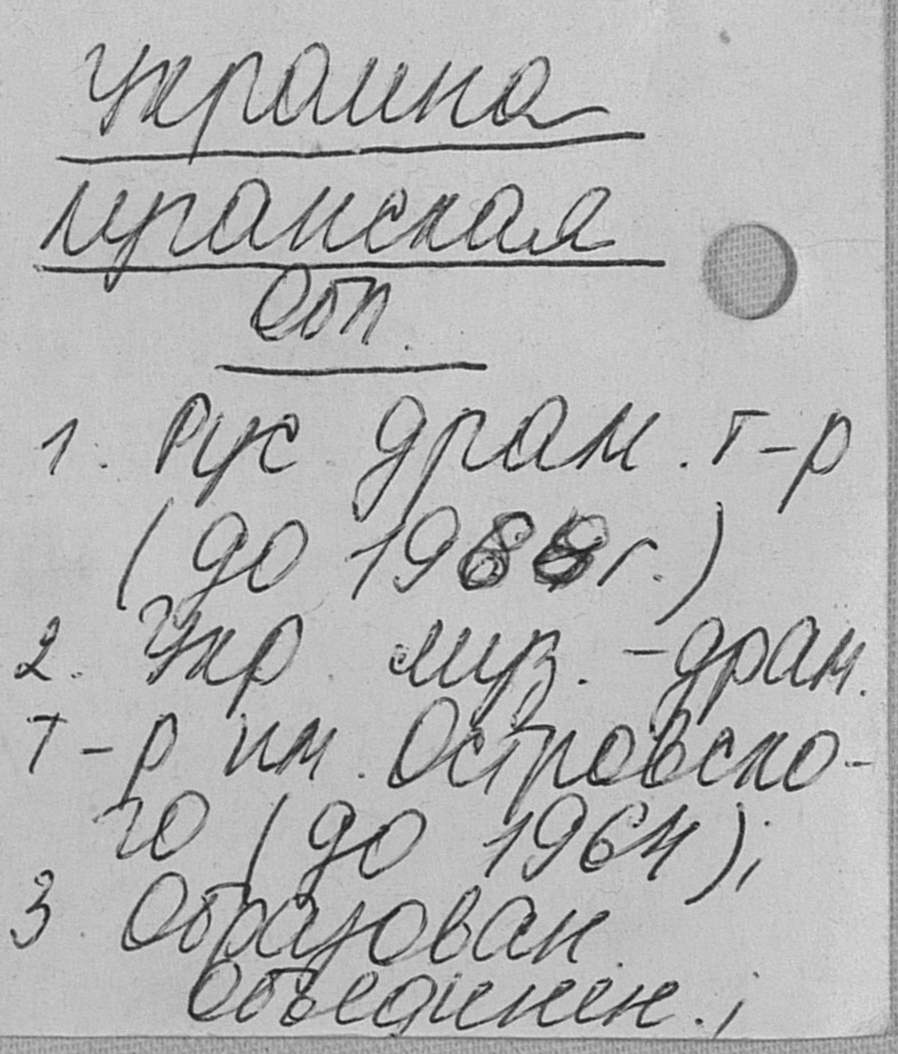 Украина
Луганская
обл.
1. Рус. драм. т-р
(до 1988 г.)
2. Укр муз. - драм.
т-р им. Островско-
го (до 1964);
3. Образован
объединен.;